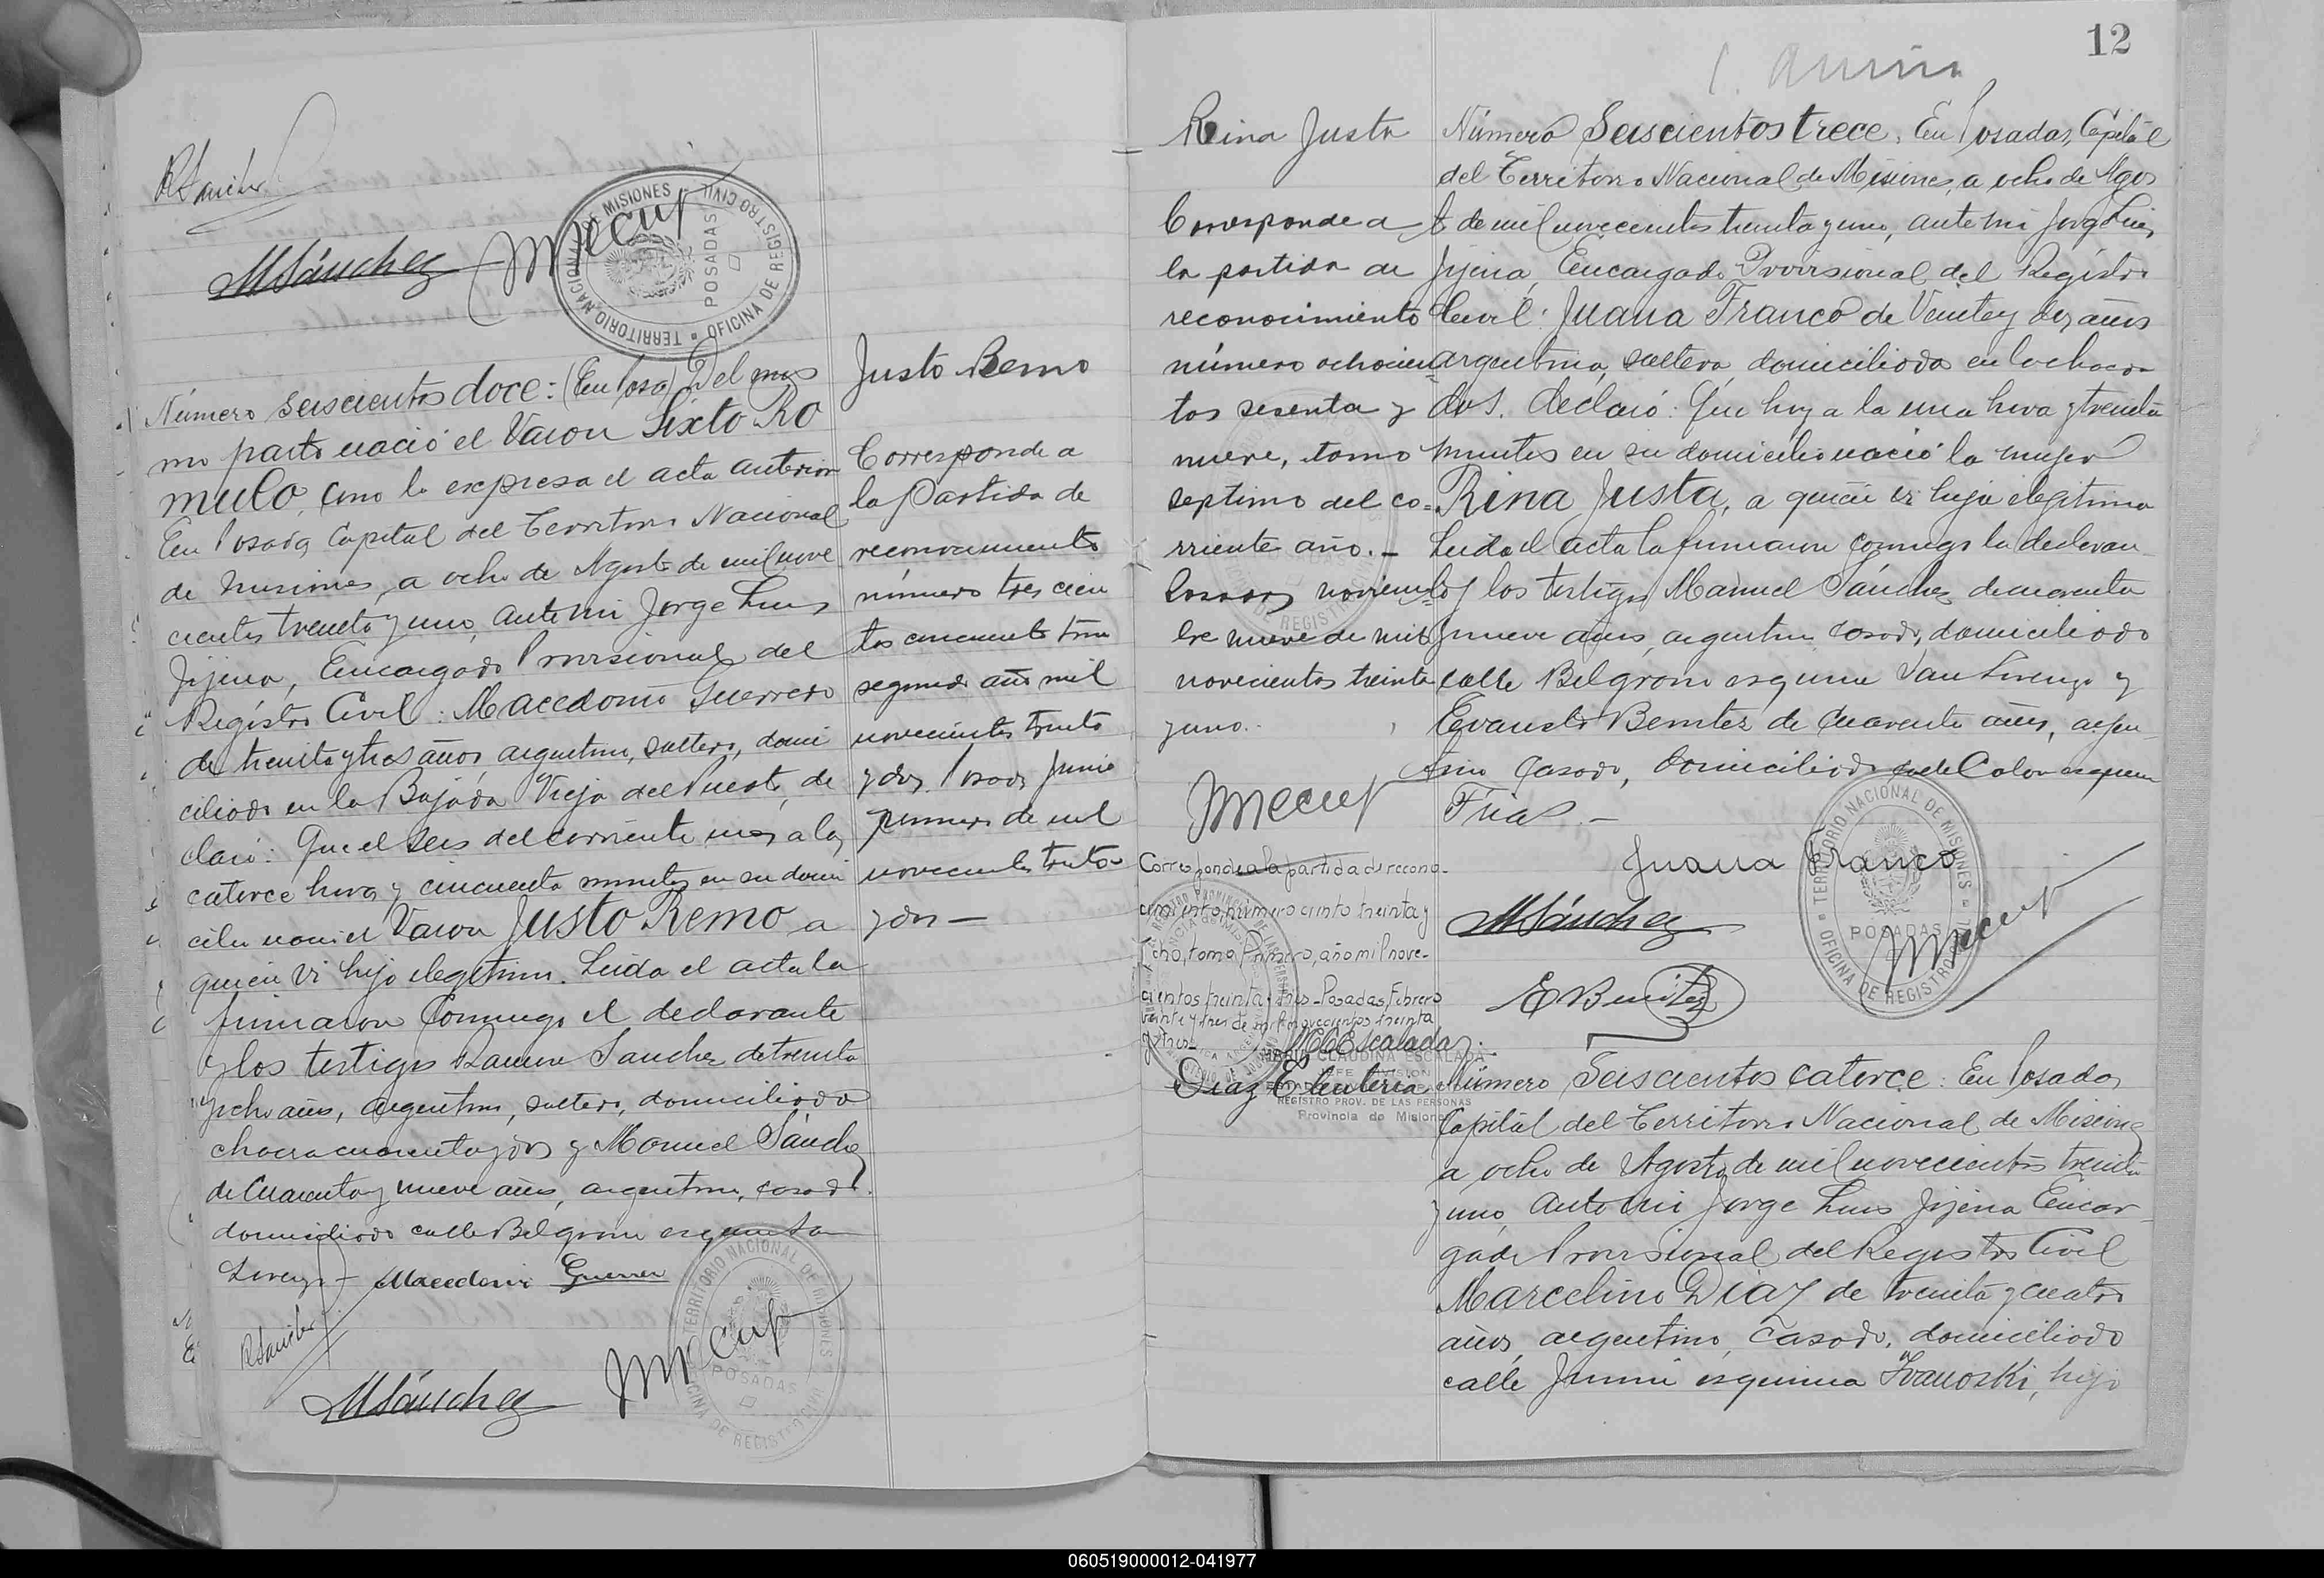 RSanchez
MSánchez
TERRITORIO NACIONAL DE MISIONES
OFICINA DE REGISTRO CIVIL
POSADAS
Número Seiscientos doce: (En Posa) Del mis
mo parto nació el Varon Sixto Ro
mulo, como lo expresa el acta anterior
En Posadas Capital del Territorio Nacional
de Misiones, a ocho de Agosto de mil nove
cientos treinta y uno, ante mi Jorge Luis
Jijena, Encargado Provisional del
Registro Civil: Macedonio Guerrero
de treinta y tres años, argentino, soltero, domi
ciliado en la Bajada Vieja del Puerto, de
claró: Que el seis del corriente mes a las
catorce horas y cincuenta minutos en su domi
cilio nació el Varon Justo Remo a
quien vi hijo ilegitimo. Leida el acta la
firmaron conmigo el declarante
y los testigos Ramon Sanchez de treinta
y ocho años, argentino, soltero, domiciliado
chacra cuarenta y dos y Manuel Sánchez
de Cuarenta y nueve años, argentino, casado
domiciliado calle Belgrano esquina San
Lorenzo - Macedonio Guerrero
RSanchez
MSánchez
TERRITORIO NACIONAL DE MISIONES
OFICINA DE REGISTRO CIVIL
POSADAS
Justo Remo
Corresponde a
la Partida de
reconocimiento
número tres cien
tos cincuenta tomo
segundo año mil
novecientos treinta
y dos. Posadas Junio
primero de mil
novecientos treinta
y dos —
12
Reina Justa
Corresponde a
la partida de
reconocimiento
número ochocien
tos sesenta y
nueve, tomo
septimo del co-
rriente año. -
Posadas noviem
bre nueve de mil
novecientos treinta
y uno.
Corresponde a la partida de recono-
cimiento número ciento treinta y
ocho, tomo Primero, año mil nove-
cientos treinta y tres - Posadas, Febrero
veinte y tres de mil novecientos treinta
y tres -
MCEscalada
MARIA CLAUDINA ESCALADA
REGISTRO PROV. DE LAS PERSONAS
Provincia de Misiones
Diaz Eleuteria
Número Seiscientos trece. En Posadas, Capital
del Territorio Nacional de Misiones, a ocho de Agos
to de mil novecientos treinta y uno, ante mi Jorge Luis
Jijena, Encargado Provisional del Registro
Civil: Juana Franco de Veinte y dos años
argentina, soltera, domiciliada en la chacra
dos. Declaró: Que hoy a la una hora y treinta
minutos en su domicilio nació la mujer
Rina Justa, a quien vi hija ilegitima
Leida el acta la firmaron conmigo la declaran
te y los testigos Manuel Sánchez de cuarenta
y nueve años, argentino casado, domiciliado
calle Belgrano esquina San Lorenzo y
Evaristo Benitez de Cuarenta años, argen
tino Casado, domiciliado calle Colon esquina
Frias. -
Juana Franco
MSánchez
EBenitez
TERRITORIO NACIONAL DE MISIONES
OFICINA DE REGISTRO CIVIL
POSADAS
Número Seiscientos catorce: En Posadas
Capital del Territorio Nacional de Misiones
a ocho de Agosto de mil novecientos treinta
y uno, ante mi Jorge Luis Jijena Encar
gado Provisional del Registro Civil
Marcelino Diaz de treinta y cuatro
años, argentino, Casado, domiciliado
calle Junin esquina Ivanoski, hijo
060519000012-041977